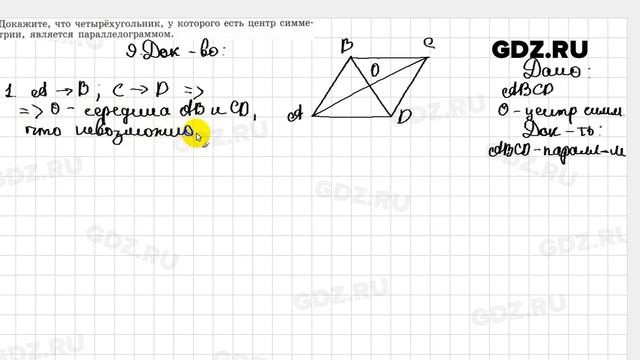 Докажите, что четырёхугольник, у которого есть центр симме-
трии, является параллелограммом.
Док-во:
1. A → B; C → D =>
=> O - середина AB и CD,
что невозможно.
B
C
O
A
D
GDZ.RU
Дано:
ABCD
O - центр симм.
Док-ть:
ABCD - паралл-м
GDZ.RU
GDZ.RU
GDZ.RU
GDZ.RU
GDZ.RU
GDZ.RU
GDZ.RU